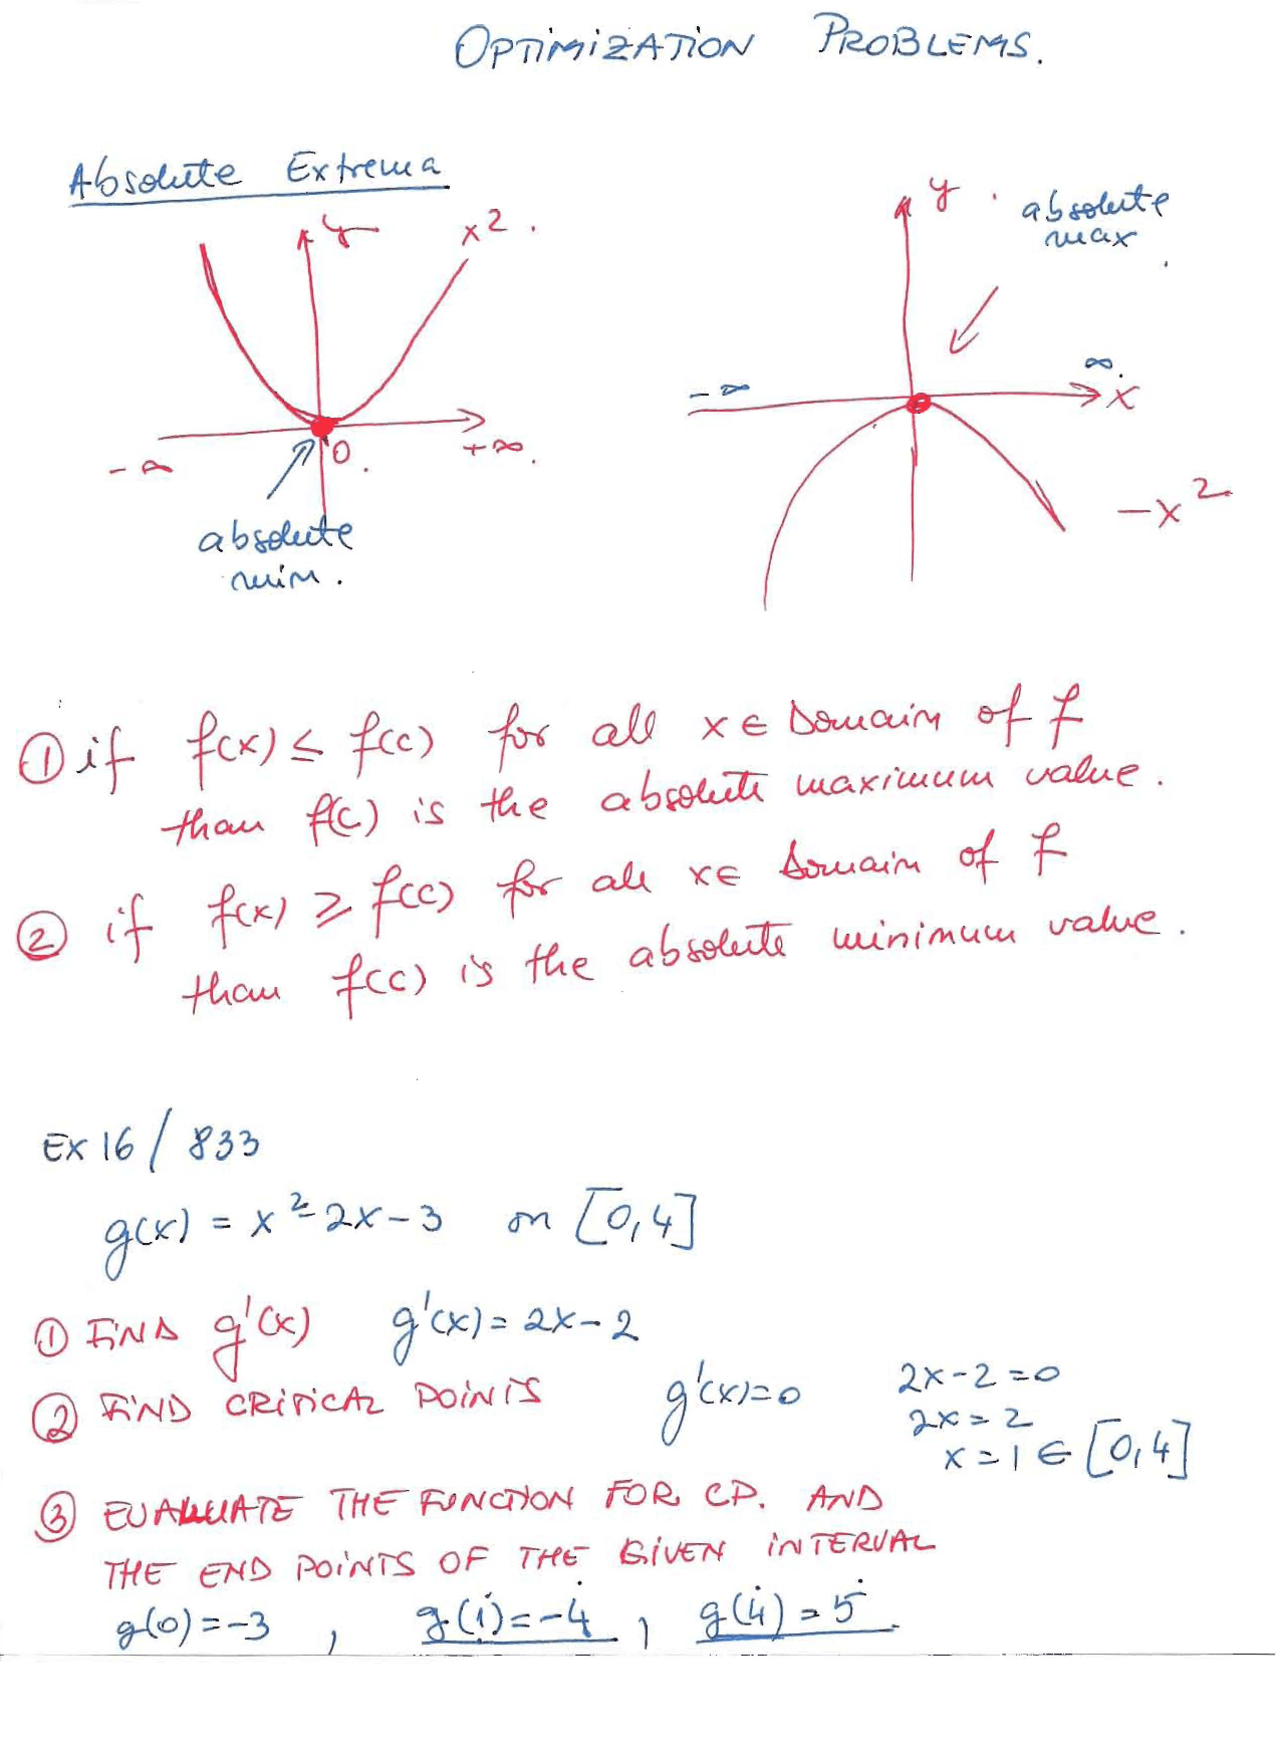 OPTIMIZATION PROBLEMS.
Absolute Extrema
y
x² .
-∞
0 .
+∞ .
absolute
min .
y .
absolute
max
-∞
∞.
x
-x²
① if f(x) ≤ f(c) for all x ∈ Domain of f
than f(c) is the absolute maximum value .
② if f(x) ≥ f(c) for all x ∈ Domain of f
than f(c) is the absolute minimum value .
EX 16 / 833
g(x) = x² - 2x - 3 on [0,4]
① FIND g'(x) g'(x) = 2x - 2
② FIND CRITICAL POINTS g'(x)=0 2x - 2 = 0
2x = 2
x = 1 ∈ [0,4]
③ EVALUATE THE FUNCTION FOR CP. AND
THE END POINTS OF THE GIVEN INTERVAL
g(0) = -3 , g(1) = -4 , g(4) = 5